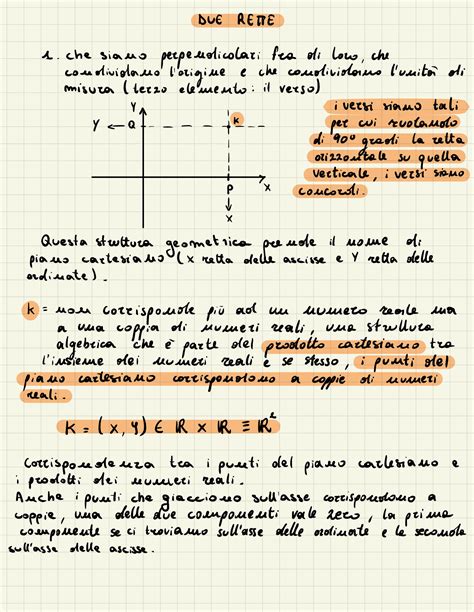 DUE RETTE
1. che siano perpendicolari fra di loro, che
condividano l'origine e che condividano l'unità di
misura (terzo elemento: il verso)
i versi siano tali
per cui ruotando
di 90° gradi la retta
orizzontale su quella
verticale, i versi siano
concordi.
Y
Y
Q
K
P
X
X
Questa struttura geometrica prende il nome di
piano cartesiano (X retta delle ascisse e Y retta delle
ordinate).
K = non corrisponde più ad un numero reale ma
a una coppia di numeri reali, una struttura
algebrica che è parte del prodotto cartesiano tra
l'insieme dei numeri reali e se stesso, i punti del
piano cartesiano corrispondono a coppie di numeri
reali.
K = (X, Y) ∈ ℝ × ℝ ≡ ℝ²
Corrispondenza tra i punti del piano cartesiano e
i prodotti dei numeri reali.
Anche i punti che giacciono sull'asse corrispondono a
coppie, una delle due componenti vale zero, la prima
componente se ci troviamo sull'asse delle ordinate e la seconda
sull'asse delle ascisse.